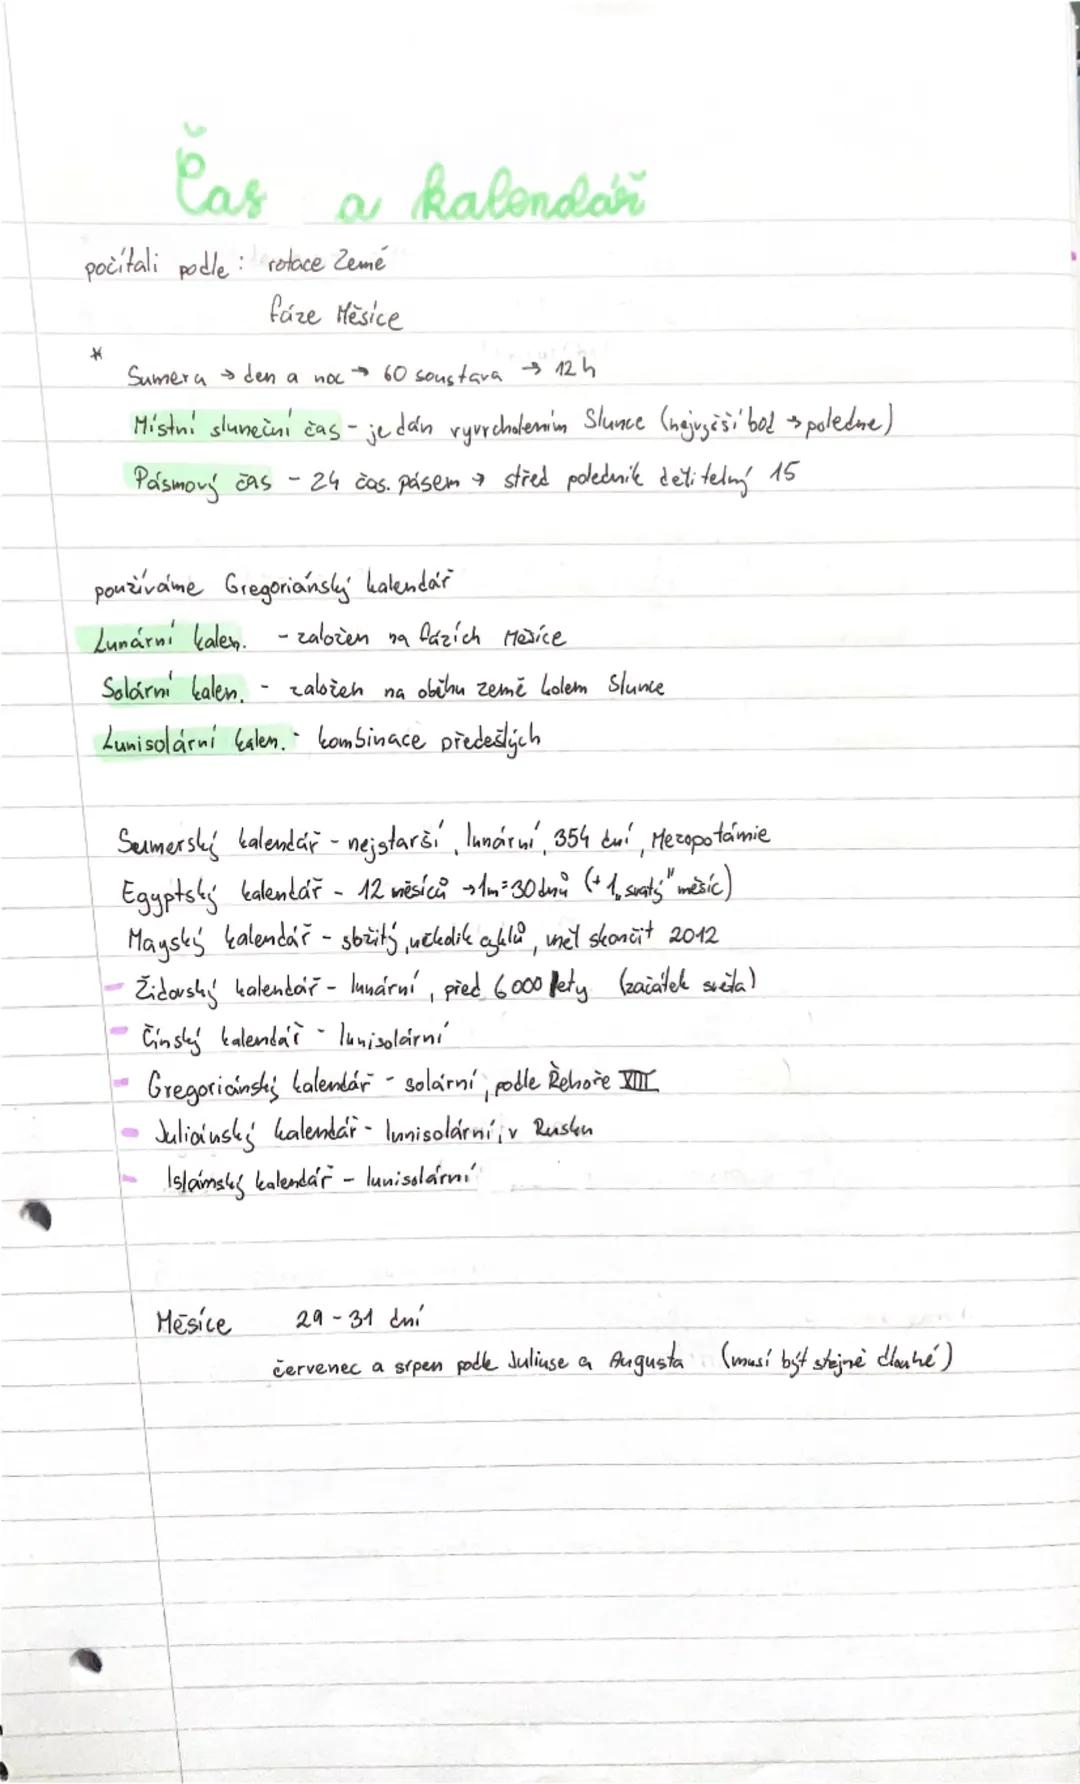 Čas a kalendář
počítali podle: rotace Země
fáze Měsíce
* Sumera → den a noc → 60 soustava → 12 h
Místní sluneční čas - je dán vyvrcholením Slunce (nejvyšší bod → poledne)
Pásmový čas - 24 čas. pásem → střed poledník dělitelný 15
používáme Gregoriánský kalendář
Lunární kalen. - založen na fázích Měsíce
Solární kalen. - založen na oběhu země kolem Slunce
Lunisolární kalen. - kombinace předešlých
Sumerský kalendář - nejstarší, lunární, 354 dní, Mezopotámie
Egyptský kalendář - 12 měsíců → 1m = 30 dnů (+ 1 „svatý" měsíc)
Mayský kalendář - složitý, několik cyklů, měl skončit 2012
- Židovský kalendář - lunární, před 6000 lety (začátek světa)
- Čínský kalendář - lunisolární
- Gregoriánský kalendář - solární, podle Řehoře XIII
- Juliánský kalendář - lunisolární, v Rusku
- Islámský kalendář - lunisolární
Měsíce 29 - 31 dní
červenec a srpen podle Juliuse a Augusta (musí být stejně dlouhé)